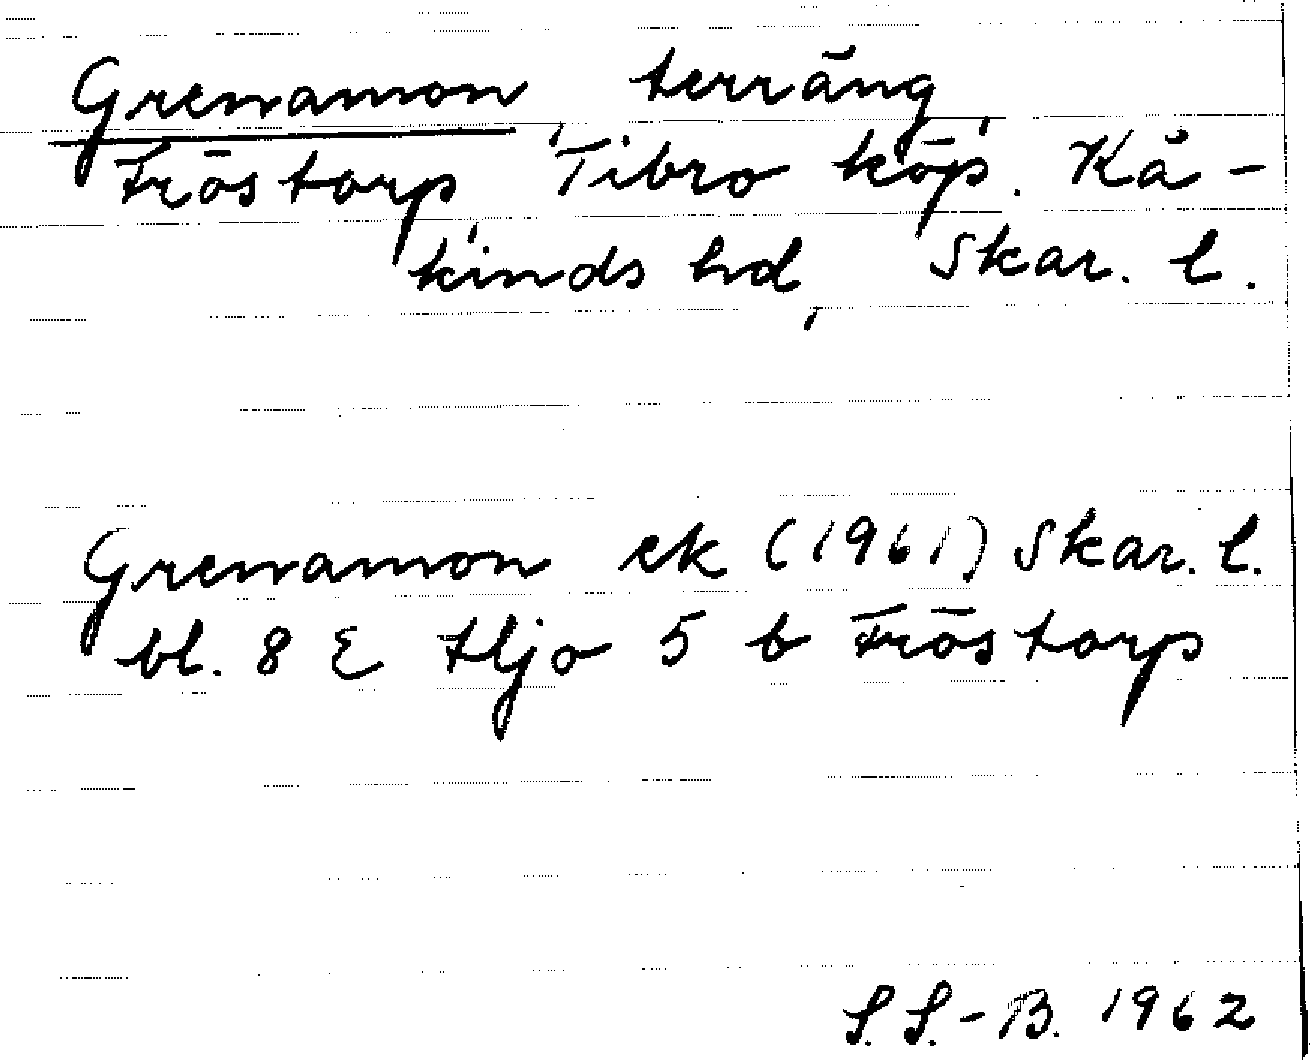 Grenamon terräng
Fröstorp, Tibro köp. Kå-
kinds hd, Skar. l.
Grenamon ek (1961) Skar. l.
bl. 8 E Hjo 5 b Fröstorp
S. S.-B. 1962